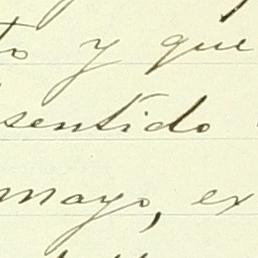 to y que
sentido
mayo, ex